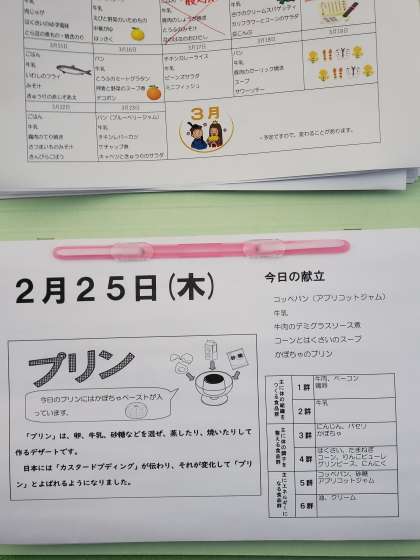 牛乳
肉じゃが
牛乳
えびと野菜のいためもの
中華がゆ
はっさく
牛乳
豚肉のしょうが焼き
とうふのみそ汁
牛乳
カリフラワーとコーンのサラダ
3月15日
3月16日
3月17日
3月18日
3月19日
ごはん
牛乳
いわしのフライ
みそ汁
きゅうりのあじそあえ
パン
牛乳
とうふのミートグラタン
押麦と野菜のスープ煮
デコポン
チキンカレーライス
牛乳
ビーンズサラダ
ミニフィッシュ
パン
牛乳
豚肉のガーリック焼き
スープ
サワーゼリー
3月22日
3月23日
ごはん
牛乳
鶏肉のてり焼き
さつまいものみそ汁
きんぴらごぼう
パン(ブルーベリージャム)
牛乳
チキンレバーカツ
ケチャップ煮
キャベツときゅうりのサラダ
3月
~予定ですので、変わることがあります。
2月25日(木)
今日の献立
コッペパン(アプリコットジャム)
牛乳
牛肉のデミグラスソース煮
コーンとはくさいのスープ
かぼちゃのプリン
プリン
砂糖
今日のプリンにはかぼちゃペーストが入
っています。
「プリン」は、卵、牛乳、砂糖などを混ぜ、蒸したり、焼いたりして
作るデザートです。
日本には「カスタードプディング」が伝わり、それが変化して「プリ
ン」とよばれるようになりました。
主に体の組織を
つくる食品群
1群
牛肉、ベーコン
鶏卵
2群
牛乳
主に体の調子を
整える食品群
3群
にんじん、パセリ
かぼちゃ
4群
はくさい、たまねぎ
コーン、りんごピューレ
グリンピース、にんにく
主にエネルギーに
なる食品群
5群
コッペパン、砂糖
アプリコットジャム
6群
油、クリーム